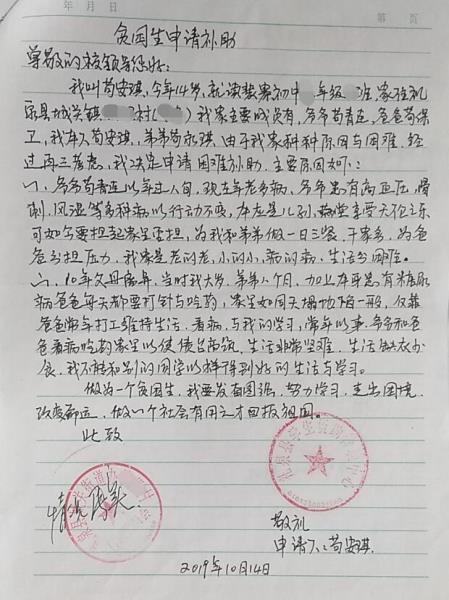 年 月 日 第 页
贫困生申请补助
尊敬的校领导您好:
我叫苟安琪,今年14岁,就读 初中 年级 班,家住礼
县城关镇 村( )我家主要成员有,爷爷苟青连,爸爸苟保
卫,我本人苟安琪,弟弟苟永琪,由于我家种种原因与困难,经
过再三考虑,我决定申请困难补助,主要原因如下:
一、爷爷苟青连以年过八旬,现在年老多病,多年患有高血压,
风湿等多种病以行动不便,本应是儿孙 堂享受天伦之乐
可如今要担起家里重担,为我和弟弟做一日三餐,干家务,为爸
爸分担压力,我家是老的老,小的小,病的病,生活分困难。
二、10年父母离异,当时我六岁,弟弟八个月,加上本年患有糖尿
病爸爸每天都要打针与吃药,家里如同天塌地陷一般,仅靠
爸爸常年打工维持生活、看病、与我的学习,常年以来,爷爷和爸
爸看病吃药家里以使债台高筑,生活非常坚难,生活缺衣少
食,我不能和别的同学以样得到好的生活与学习。
做为一个贫困生,我要发奋图强,努力学习,走出困境,
改变命运,做以个社会有用之才回报祖国。
此致
情况属实
敬礼
申请人:苟安琪
2019年10月14日